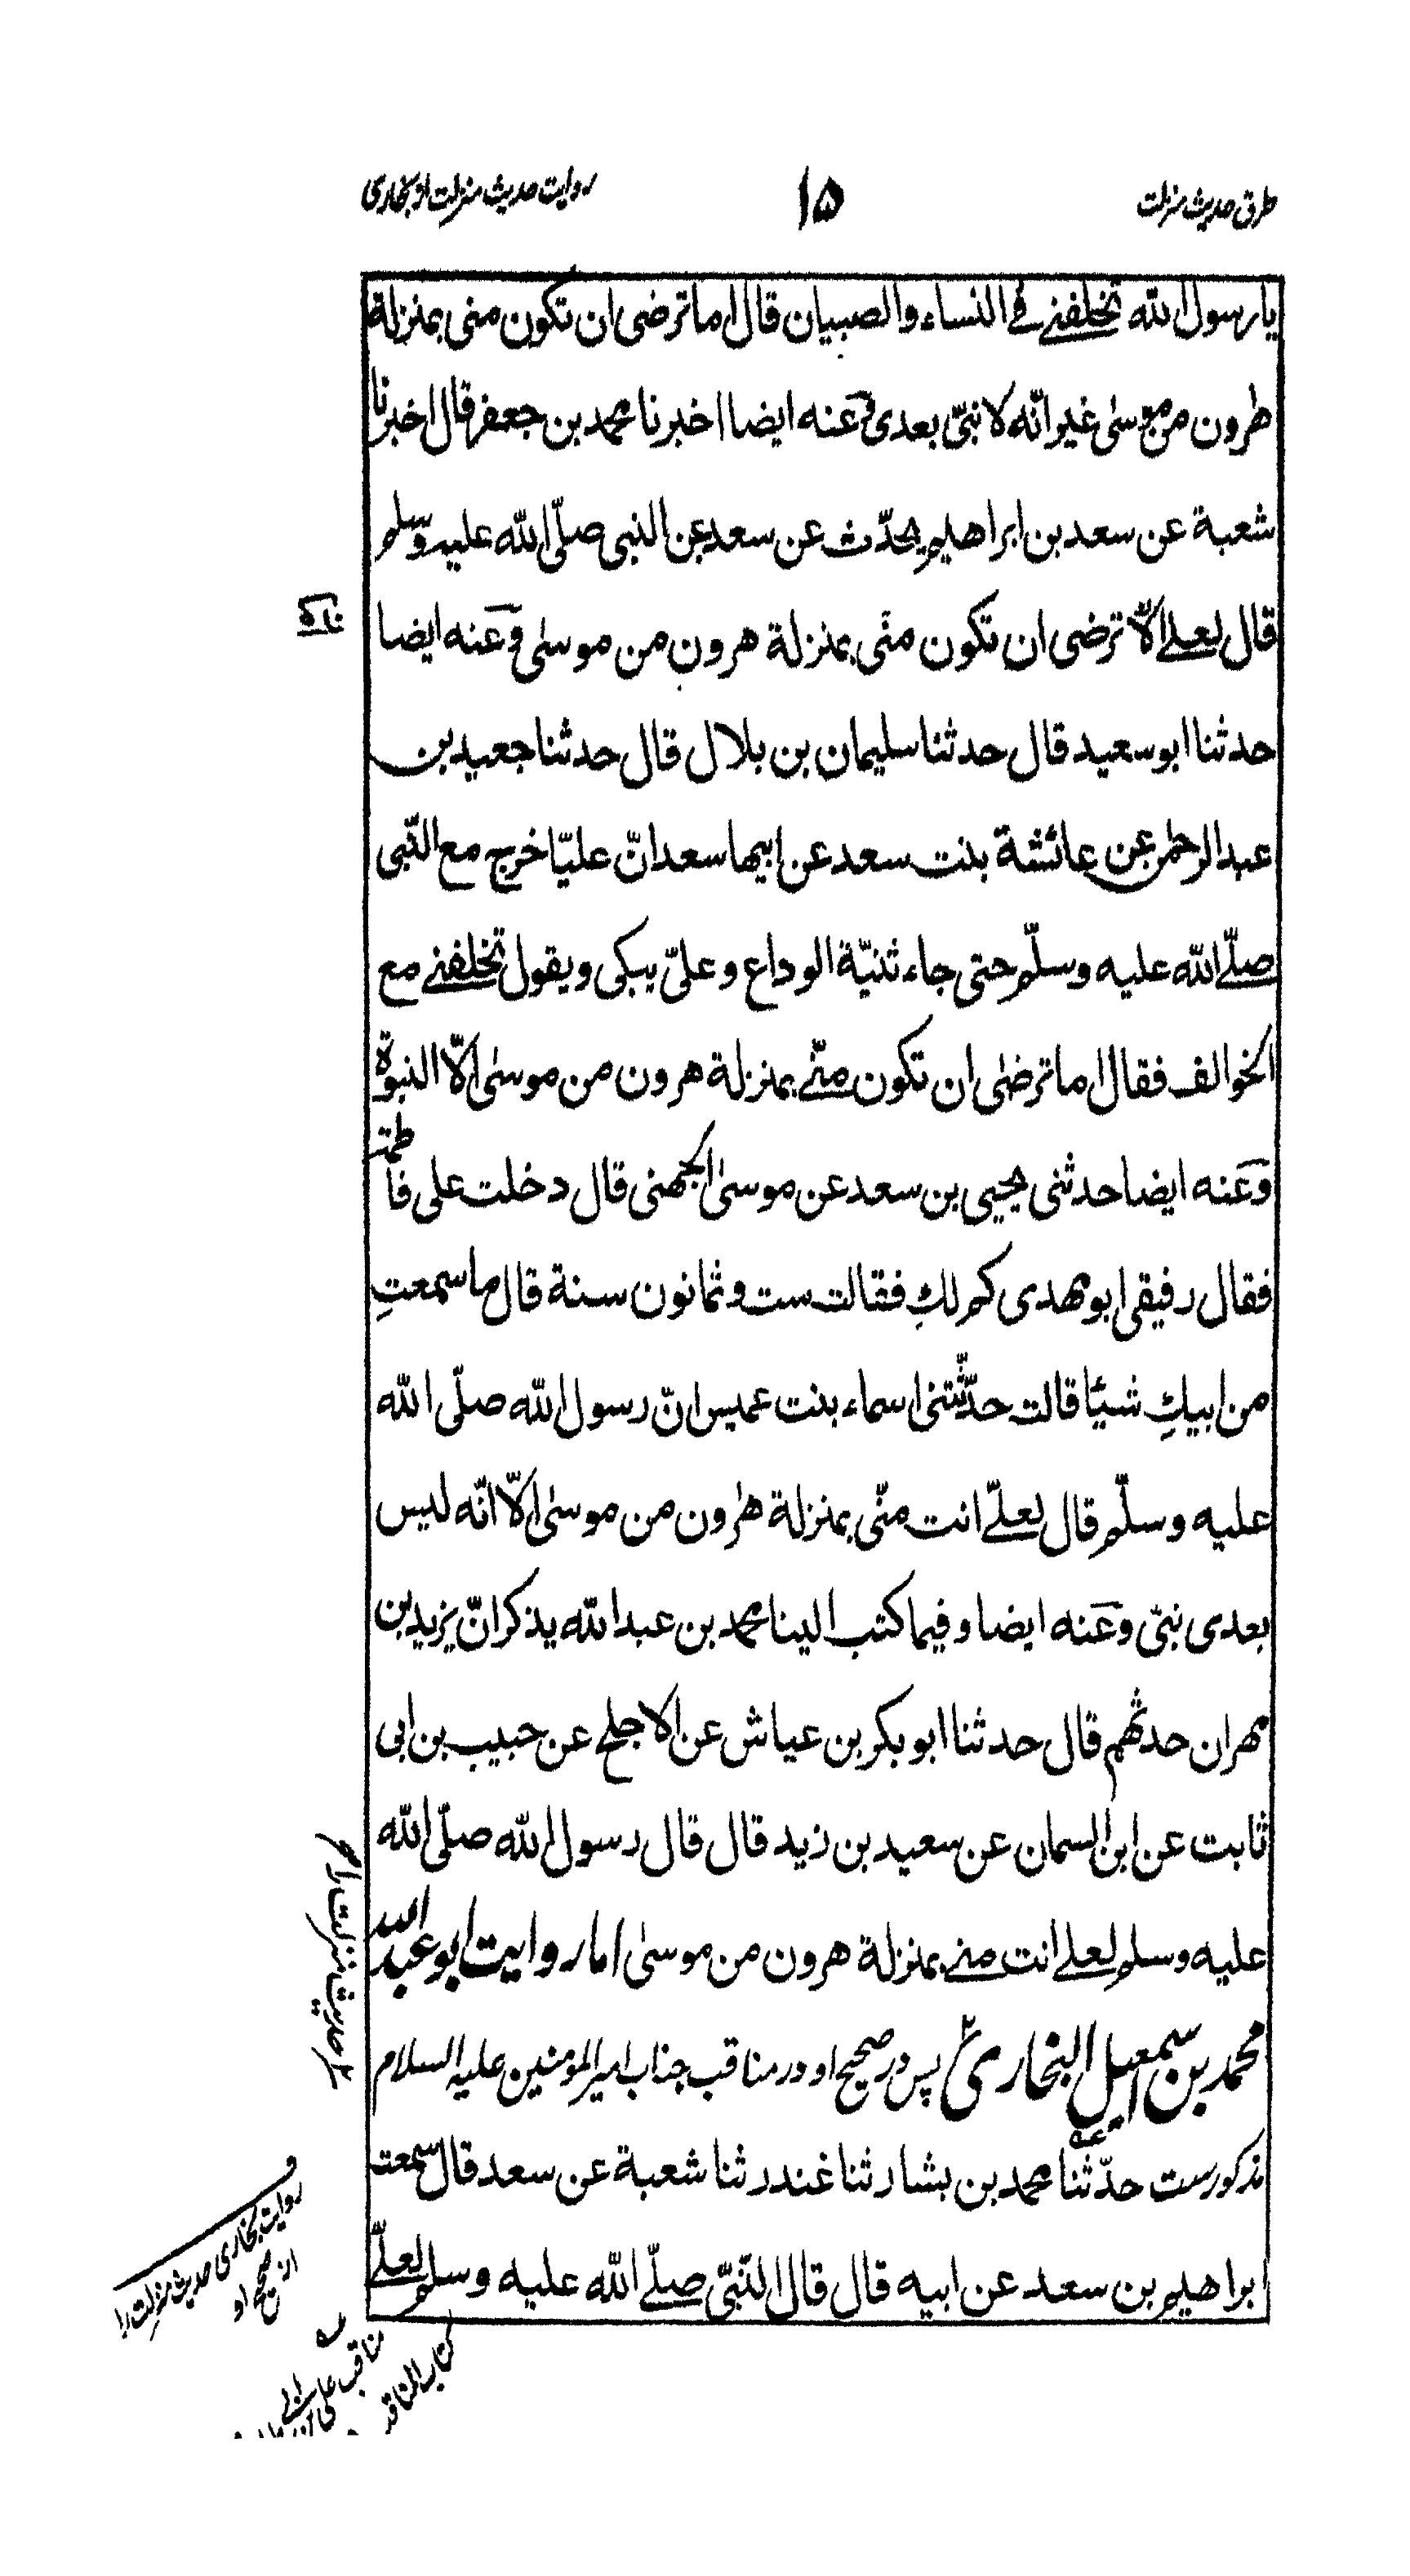 طرق حدیث منزلت
۱۵
روایت حدیث منزلت از بخاری
یا رسول الله تخلفنے فے النساء والصبیان قال اما ترضی ان تکون منی بمنزلة
هٰرون من موسٰی غیر انّه لا نبیّ بعدی وَعنه ایضا اخبرنا محمد بن جعفر قال اخبرنا
شعبة عن سعد بن ابراهیم یحدّث عن سعد عن النبی صلّی الله علیه وسلم
قال لعلے الّا ترضی ان تکون منّی بمنزلة هرون من موسٰی وَعنه ایضا
حدثنا ابو سعید قال حدثنا سلیمان بن بلال قال حدثنا جعید بن
عبد الرحمن عن عائشة بنت سعد عن ابیها سعد انّ علیّا خرج مع النّبی
صلّے الله علیه وسلّم حتی جاء ثنیّة الوداع وعلیّ یبکی ویقول تخلفنے مع
الخوالف فقال اما ترضٰی ان تکون منّے بمنزلة هرون من موسٰی الّا النبوة
وَعنه ایضا حدثنی یحیی بن سعد عن موسٰی الجهنی قال دخلت علی فاطمة
فقال رفیقی ابو مهدی کم لكِ فقالت ست وثمانون سنة قال ما سمعتِ
من ابیكِ شیئًا قالت حدّثتنی اسماء بنت عمیس انّ رسول الله صلّی الله
علیه وسلّم قال لعلیّ انت منّی بمنزلة هٰرون من موسٰی الّا انّه لیس
بعدی نبیّ وَعنه ایضا وفیما کتب الینا محمد بن عبد الله یذکر انّ یزید بن
مهران حدثهم قال حدثنا ابو بکر بن عیاش عن الاجلح عن حبیب بن ابی
ثابت عن ابن السمان عن سعید بن زید قال قال رسول الله صلّی الله
علیه وسلم لعلے انت منے بمنزلة هرون من موسٰی اما روایت ابو عبد الله
محمد بن اسمعیل البخاری پس در صحیح او در مناقب جناب امیر المؤمنین علیه السلام
مذکورست حدّثنا محمد بن بشار ثنا غندر ثنا شعبة عن سعد قال سمعت
ابراهیم بن سعد عن ابیه قال قال النّبیّ صلّے الله علیه وسلم لعلیّ
روایت بخاری حدیث منزلت را
از صحیح او
مناقب علی بن ابی
کتاب المناقب